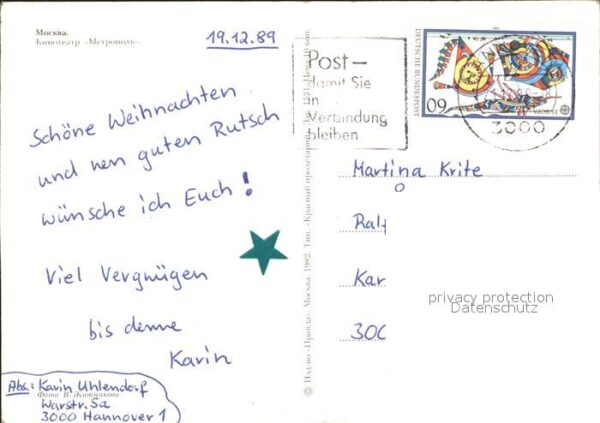 Москва.
Кинотеатр «Метрополь».
19.12.89
Schöne Weihnachten
und nen guten Rutsch
wünsche ich Euch!
Viel Vergnügen
bis denne
Karin
Abs.: Karin Uhlendorf
Фото В. Житникова
Warstr. 5a
3000 Hannover 1
Post –
damit Sie
in
Verbindung
bleiben
DEUTSCHE BUNDESPOST
60
EUROPA
3000
Martina Krite
Ralf
Kar
300
privacy protection
Datenschutz
© Изд-во «Правда». Москва. 1982. Тип. «Красный пролетарий».